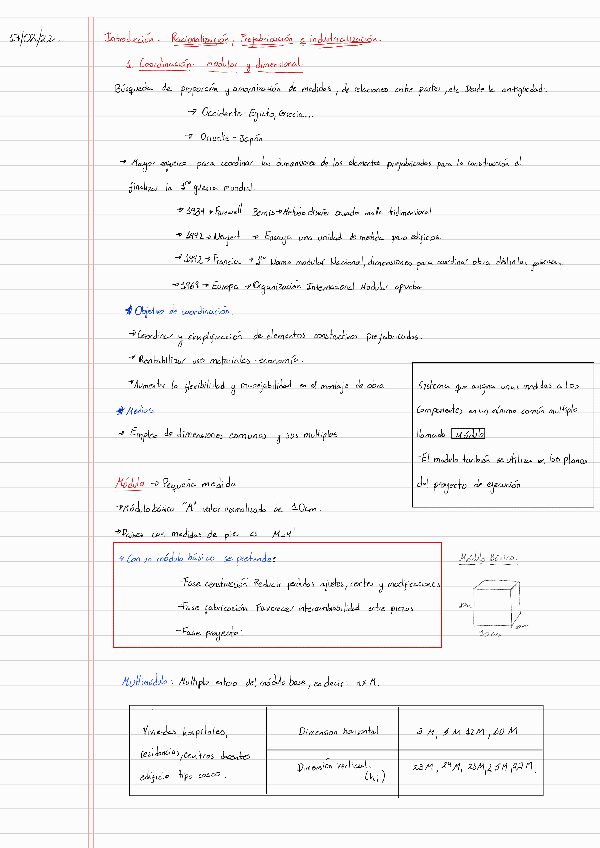 Introducción. Racionalización, Prefabricación e industrialización.
1. Coordinación modular y dimensional
Búsqueda de proporción y armonización de medidas, de relaciones entre partes, etc Desde la antigüedad:
→ Occidente Egipto, Grecia...
→ Oriente - Japón
→ Mayor para coordinar las dimensiones de los elementos prefabricados para la construcción al
finalizar la 1ra guerra mundial.
→ 1934 → Farwell Bemis → Método diseño tridimensional
→ 1942 → → Ensaya una unidad de medida para edificios.
→ 1942 → Francia → 1ra Norma modular Nacional, dimensiones para coordinar obra distintas
→ Europa → Organización Internacional Modular aprueba
* Objetivo de coordinación.
→ Coordinar y simplificación de elementos constructivos prefabricados.
→ Rentabilizar uso materiales - economía.
→ Aumentar la flexibilidad y manejabilidad en el montaje de obra
* Medios
→ Empleo de dimensiones comunes y sus multiplos
Sistema que asigna unas medidas a los
componentes en un mínimo común multiplo
llamado Módulo
-El modulo también se utiliza en los planos
del proyecto de ejecución
Módulo → Pequeña medida
→ Módulo básico "M" valor normalizado de 10cm.
→ Países con medidas de pies es M=4"
→ Con un módulo básico se pretende:
-Fase construcción: Reducir perdidas ajustes, cortes y modificaciones
-Fase fabricación: Favorecer intercambiabilidad entre piezas
-Fase proyecto:
Módulo Básico:
10cm
Multimódulo: Multiplo entero del módulo base, es decir n x M.
Viviendas hospitales,
residencias, centros docentes
edificio tipo
Dimension horizontal
3 M, 6 M 12 M, 60 M
Dimensión vertical.
(h,)